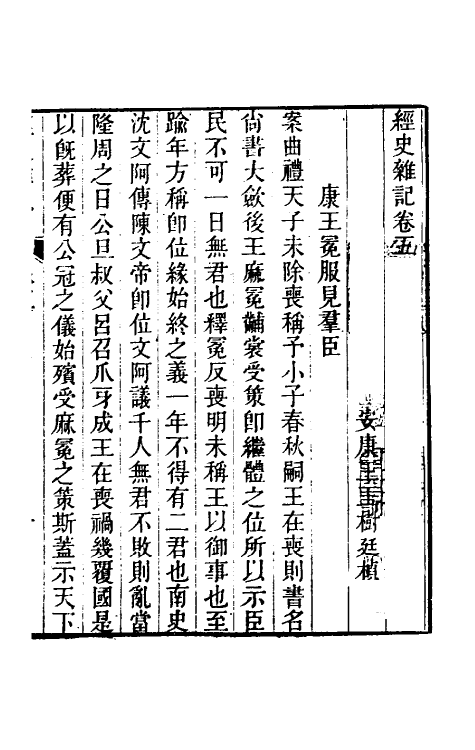 經史雜記卷五
安康王玉樹廷楨
康王冕服見羣臣
案曲禮天子未除喪稱子小子春秋嗣王在喪則書名
尙書大斂後王麻冕黼裳受策卽繼體之位所以示臣
民不可一日無君也釋冕反喪明未稱王以御事也至
踰年方稱卽位緣始終之義一年不得有二君也南史
沈文阿傳陳文帝卽位文阿議千人無君不敗則亂當
隆周之日公旦叔父呂召爪牙成王在喪禍幾覆國是
以旣葬便有公冠之儀始殯受麻冕之策斯蓋示天下